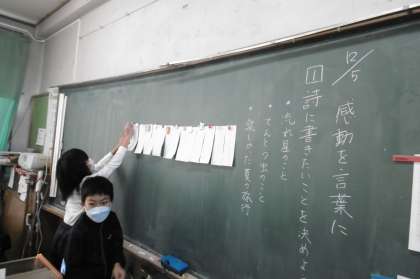 12/5
感動を言葉に
1 詩に書きたいことを決めよ
・流れ星のこと
・てんとう虫のこと
・楽しかった夏の旅行